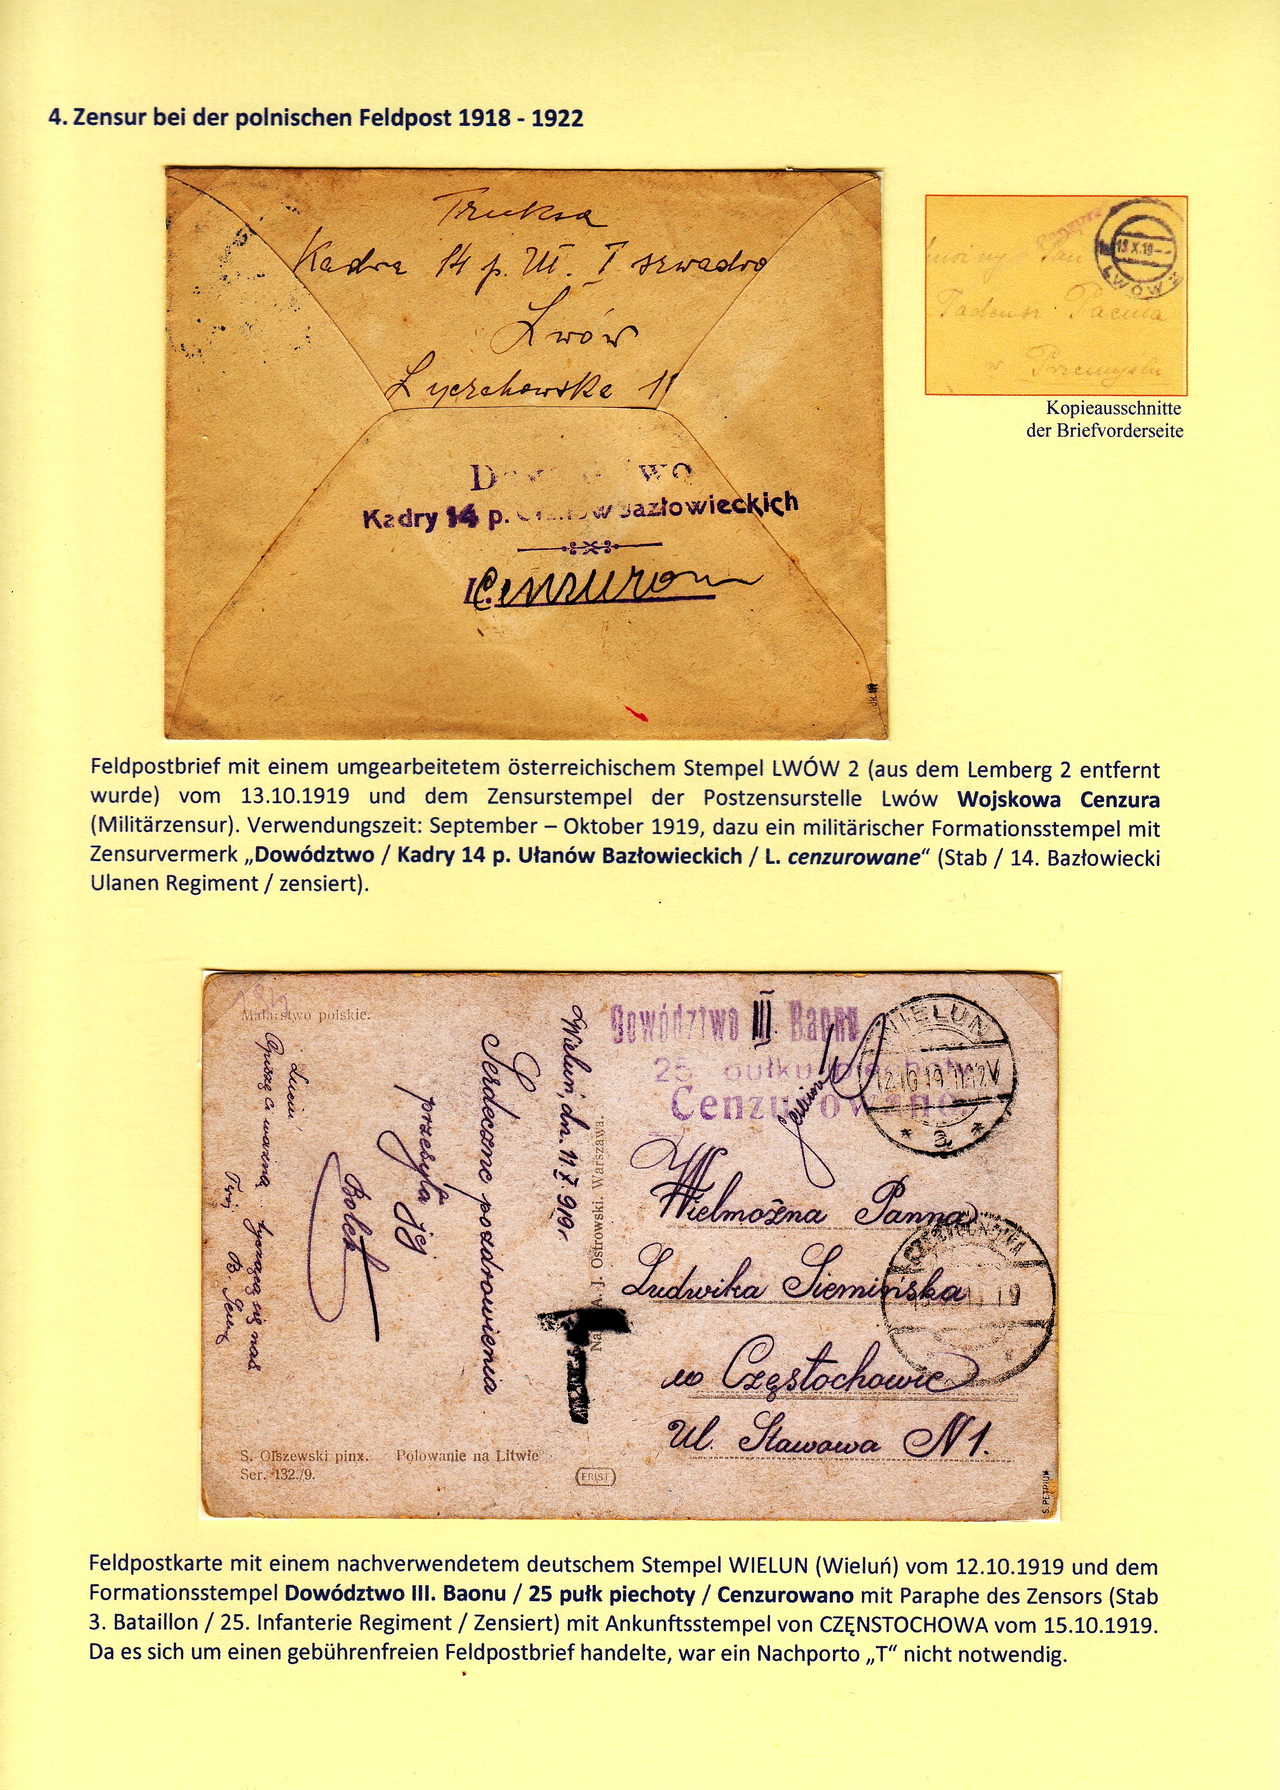 4. Zensur bei der polnischen Feldpost 1918 - 1922
Truksa
Kadra 14 p. Uł. I szwadro
Lwów
Łyczakowska 11
Kadry 14 p. Bazłowieckich
L. Cenzurowan
Cenzura
13.X.19
LWÓW 2
Tadeusz Pacuła
w Przemyślu
Kopieausschnitte
der Briefvorderseite
Feldpostbrief mit einem umgearbeitetem österreichischem Stempel LWÓW 2 (aus dem Lemberg 2 entfernt
wurde) vom 13.10.1919 und dem Zensurstempel der Postzensurstelle Lwów Wojskowa Cenzura
(Militärzensur). Verwendungszeit: September – Oktober 1919, dazu ein militärischer Formationsstempel mit
Zensurvermerk „Dowództwo / Kadry 14 p. Ułanów Bazłowieckich / L. cenzurowane“ (Stab / 14. Bazłowiecki
Ulanen Regiment / zensiert).
Malarstwo polskie.
Dowództwo III Baonu
25 pułku piechoty
Cenzurowane
WIELUN
12.10.19.11-12V
* a *
Wieluń, dn. 11 X 919 r
Serdeczne pozdrowienia
przesyła Jej
Bolek
A. J. Ostrowski. Warszawa.
Wielmożna Panna
Ludwika Siemińska
w Częstochowie
Ul. Stawowa N 1.
T
S. Olszewski pinx. Polowanie na Litwie
Ser. 132./9.
S. PETRIUK
Feldpostkarte mit einem nachverwendetem deutschem Stempel WIELUN (Wieluń) vom 12.10.1919 und dem
Formationsstempel Dowództwo III. Baonu / 25 pułk piechoty / Cenzurowano mit Paraphe des Zensors (Stab
3. Bataillon / 25. Infanterie Regiment / Zensiert) mit Ankunftsstempel von CZĘNSTOCHOWA vom 15.10.1919.
Da es sich um einen gebührenfreien Feldpostbrief handelte, war ein Nachporto „T“ nicht notwendig.